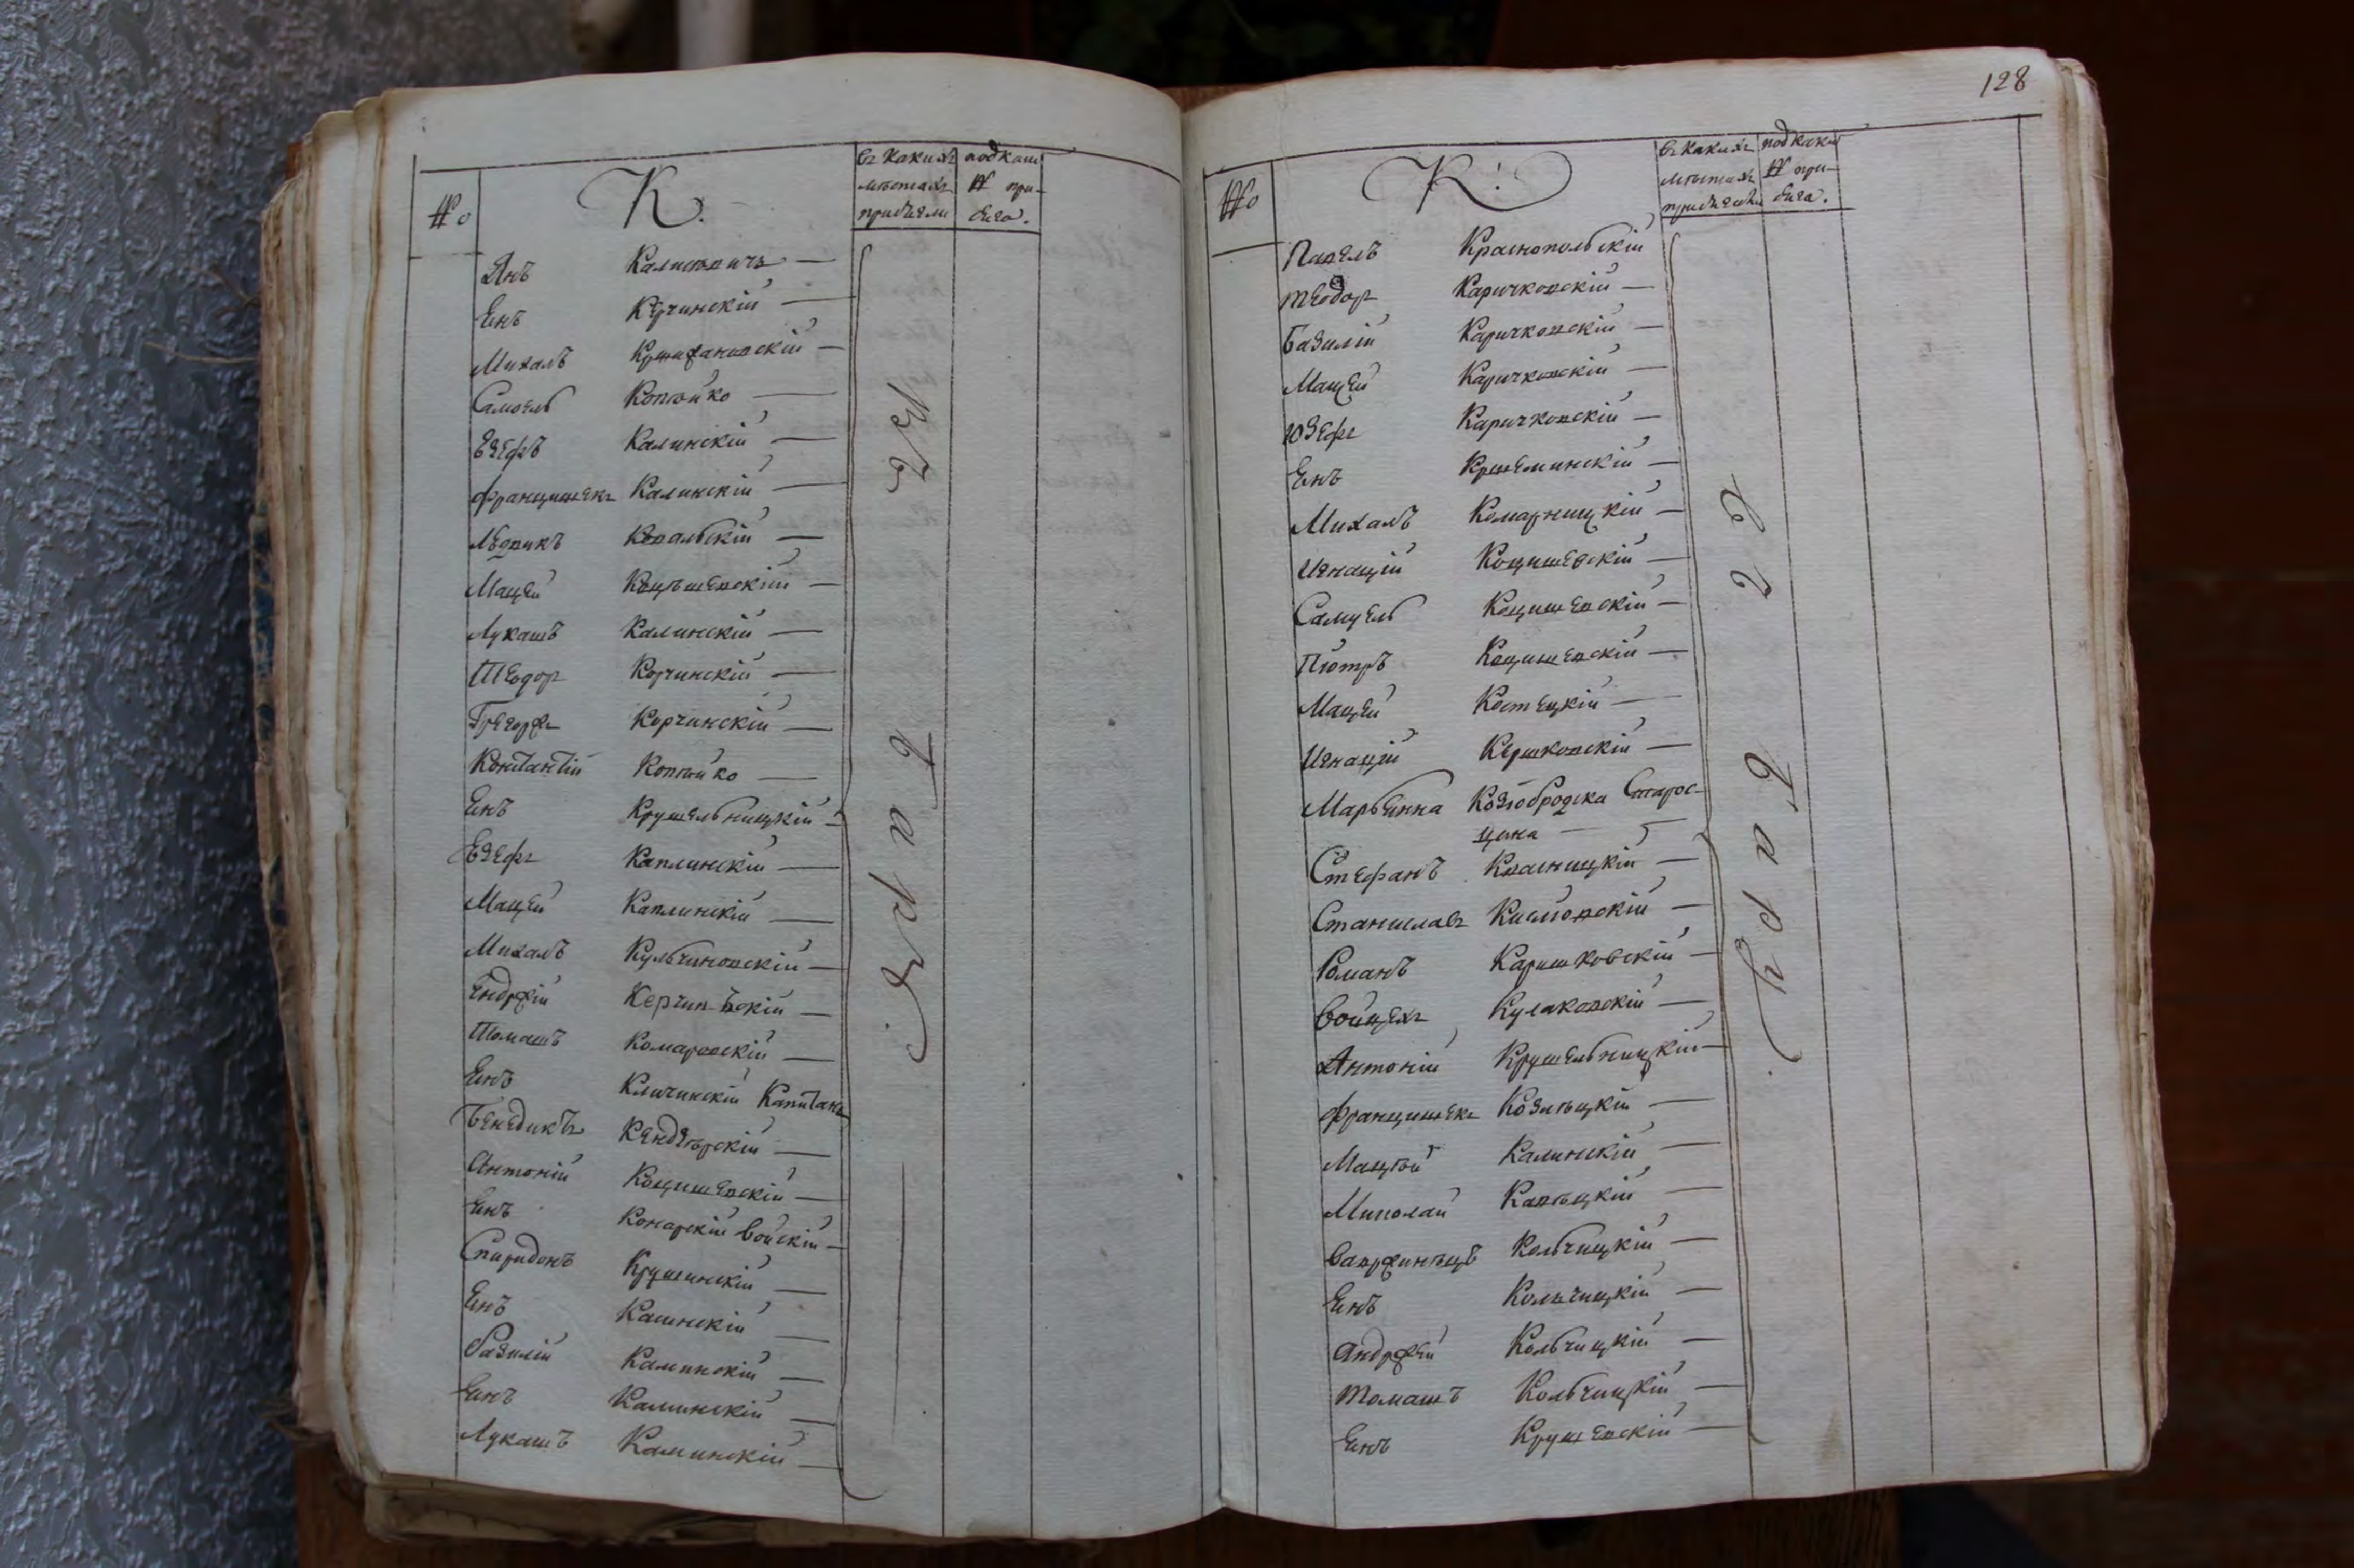 №
К.
въ какихъ
мѣстахъ
присягали
подъ каки
№ при-
сяга.
Янъ Калиновичъ —
Енъ Керчинскій —
Михалъ
Самоель Копотко —
Езефъ Калинскій —
Францишекъ Калинскій —
Людвикъ Ковальскій —
Мацей Коцѣшевскій —
Лукашъ Калинскій —
Теодор Корчинскій —
Грегоржъ Корчинскій —
Константій
Енъ Крушельницкій —
Езефъ Каплинскій —
Мацей Каплинскій —
Михалъ Кульчиновскій —
Ендржій Керчинскій —
Томашъ Комаровскій —
Енъ Кличинскій Капитанъ
Бенедиктъ Кендзѣрскій —
Антоній Коцишевскій —
Енъ Конарскій Войскій —
Спиридонъ Крушинскій —
Енъ Калинскій —
Базилій Калинскій —
Енъ Калинскій —
Лукашъ Калинскій —
128
№
К:
въ какихъ
мѣстахъ
присягали
подъ каки
№ при-
сяга.
Павелъ Краснопольскій
Теодор Каричковскій —
Базилій Каричковскій —
Мацей Каричковскій —
Юзефъ Каричковскій —
Енъ Кршеминскій —
Михалъ Комарницкій —
Игнацій Коцишевскій —
Самуель Коцишевскій —
Піотръ Коцишевскій —
Мацей Костецкій —
Игнацій Кершковскій —
Марьянна Козѣбродска Старос-
цина —
Стефанъ Квасницкій —
Станиславъ
Романъ Каришковскій —
Войцехъ Кулаковскій —
Антоній Крушельницкій —
Францишекъ Козѣцкій —
Мацѣй Калинскій —
Миколай Кавѣцкій —
Вавржинѣцъ Кольчицкій —
Енъ Кольчицкій —
Андржей Кольчицкій —
Томашъ Кольчицкій —
Енъ Крушевскій —